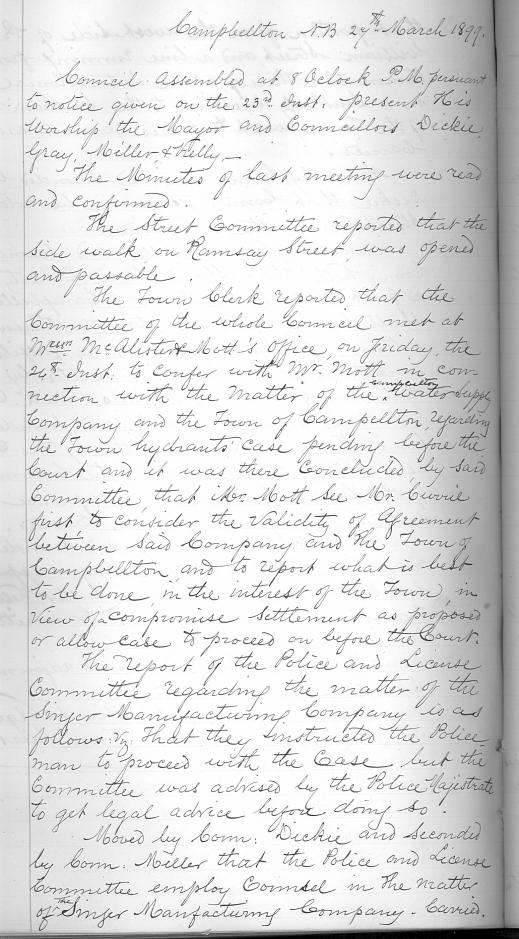 Campbellton N.B. 27th March 1899.
Council assembled at 8 Oclock P.M. pursuant
to notice given on the 23rd Inst. present His
Worship the Mayor and Councillors Dickie,
Gray, Miller & Kelly –
The Minutes of last meeting were read
and confirmed.
The Street Committee reported that the
side walk on Ramsay Street was opened
and passable.
The Town Clerk reported that the
Committee of the whole Council met at
Messrs McAlister & Mott's office, on Friday, the
24th Inst. to confer with Mr. Mott in con
nection with the Matter of the Campbellton Water Supply
Company and the Town of Campellton, regarding
the Town hydrants case pending before the
Court and it was there Concluded by said
Committee, that Mr. Mott see Mr. Currie
first to consider the Validity of Agreement
between said Company and the Town of
Campbellton, and to report what is best
to be done, in the interest of the Town, in
View of a compromise settlement as proposed
or allow case to proceed on before the Court.
The report of the Police and License
Committee regarding the matter of the
Singer Manufacturing Company is as
follows: Viz That they instructed the Police
man to proceed with the Case but the
Committee was advised by the Police Majestrate
to get legal advice before doing so.
Moved by Conn. Dickie and seconded
by Conn. Miller that the Police and License
Committee employ Counsel in the matter
of The Singer Manfacturing Company. Carried.